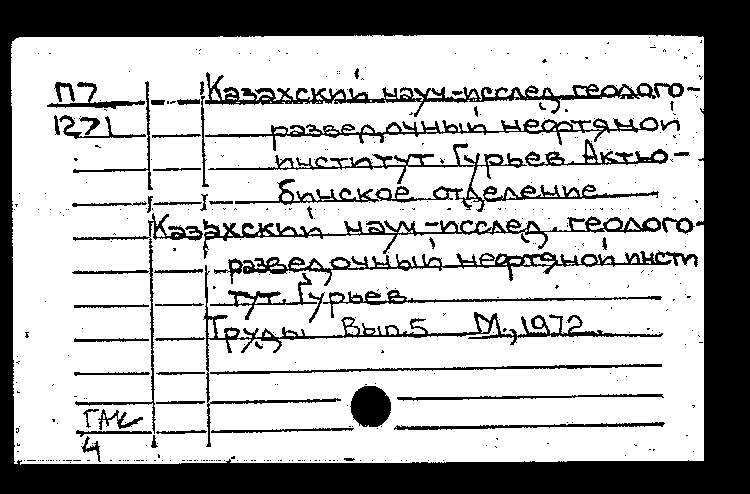 П7 Казахский науч.-исслед. геолого-
1271 разведочный нефтяной
институт. Гурьев. Актю-
бинское отделение.
Казахский науч.-исслед. геолого-
разведочный нефтяной инсти
тут. Гурьев.
Труды. Вып.5 М., 1972.
ГАК
4